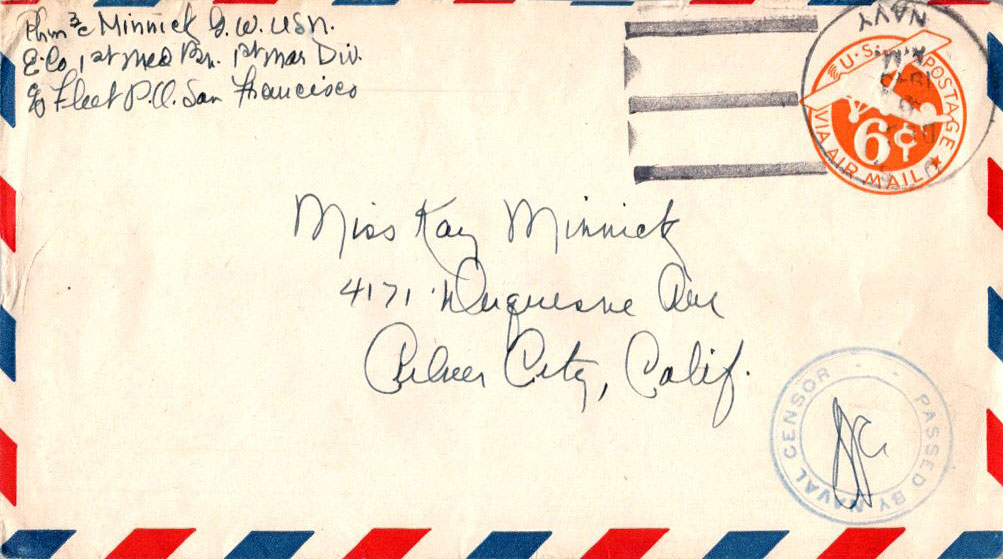 Phm 3/c Minnick G. W. USN.
E. Co, 1st Med Bn. 1st Mar Div.
c/o Fleet P.O. San Francisco
NAVY
U.S. POSTAGE
6¢
VIA AIR MAIL
Miss Kay Minnick
4171 Duquesne Ave
Culver City, Calif.
PASSED BY NAVAL CENSOR